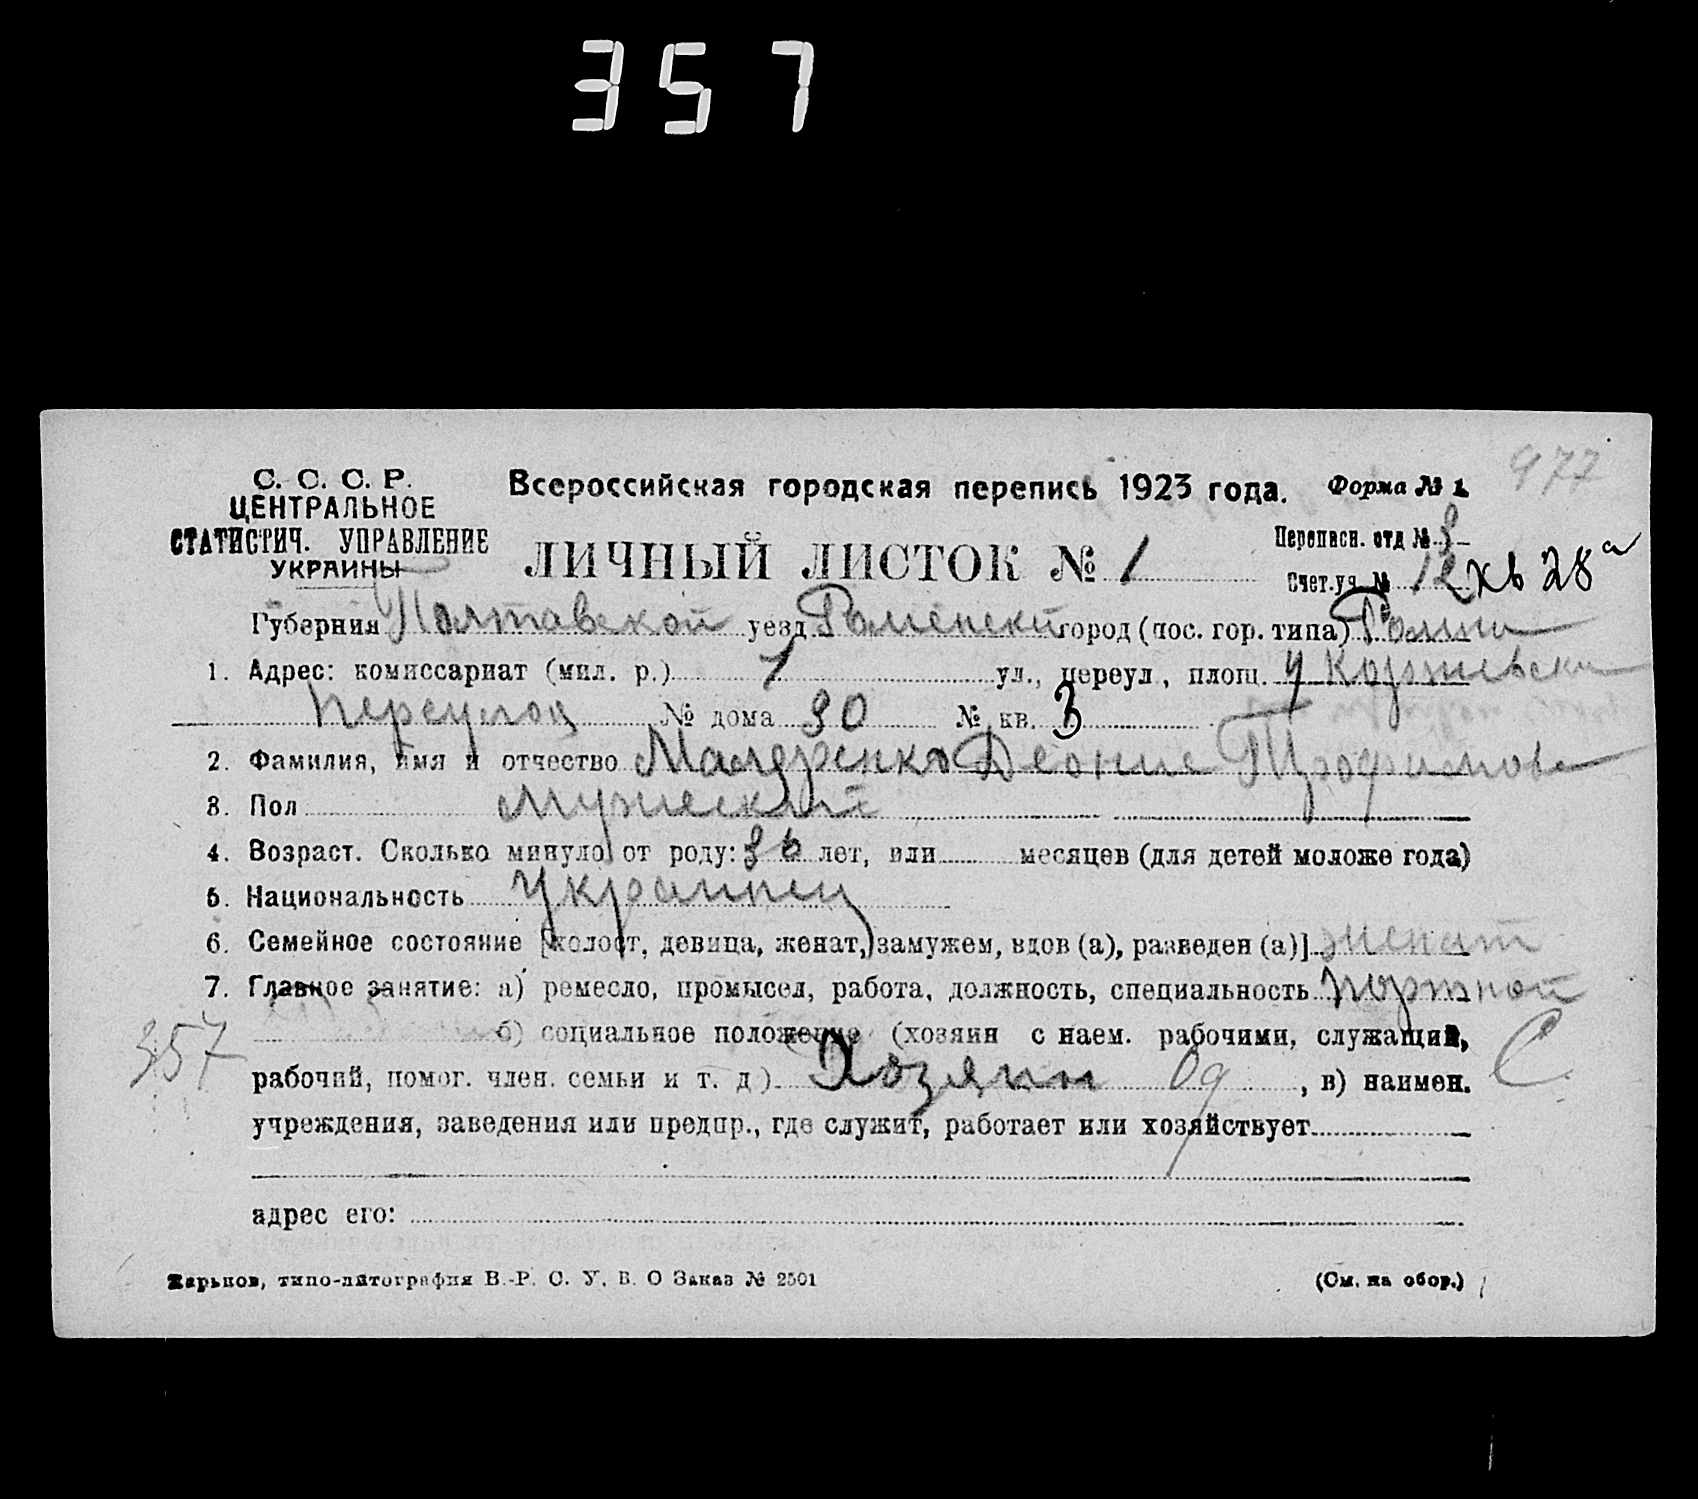 357
977
С. С. С. Р.
ЦЕНТРАЛЬНОЕ
СТАТИСТИЧ. УПРАВЛЕНИЕ
УКРАИНЫ
Всероссийская городская перепись 1923 года.
Форма № 1
ЛИЧНЫЙ ЛИСТОК № 1
Переписн. отд №
Счет.уч. № 12 хв 28а
Губерния Полтавской уезд Роменски город (пос. гор. типа) Ромны
1. Адрес: комиссариат (мил. р.) 1 ул., переул, площ.
№ дома 90 № кв. 3
2. Фамилия, имя и отчество Трофимов
3. Пол Мужеский
4. Возраст. Сколько минуло от роду: лет, или месяцев (для детей моложе года)
5. Национальность Украинец
6. Семейное состояние [холост, девица, женат, замужем, вдов (а), разведен (а)] женат
7. Главное занятие: а) ремесло, промысел, работа, должность, специальность портной
357
б) социальное положение (хозяин с наем. рабочими, служащий,
рабочий, помог. член. семьи и т. д) Хозяин Од , в) наимен. С
учреждения, заведения или предпр., где служит, работает или хозяйствует
адрес его:
Харьков, типо-литография В.-Р. С. У. В. О Заказ № 2501
(См. на обор.)